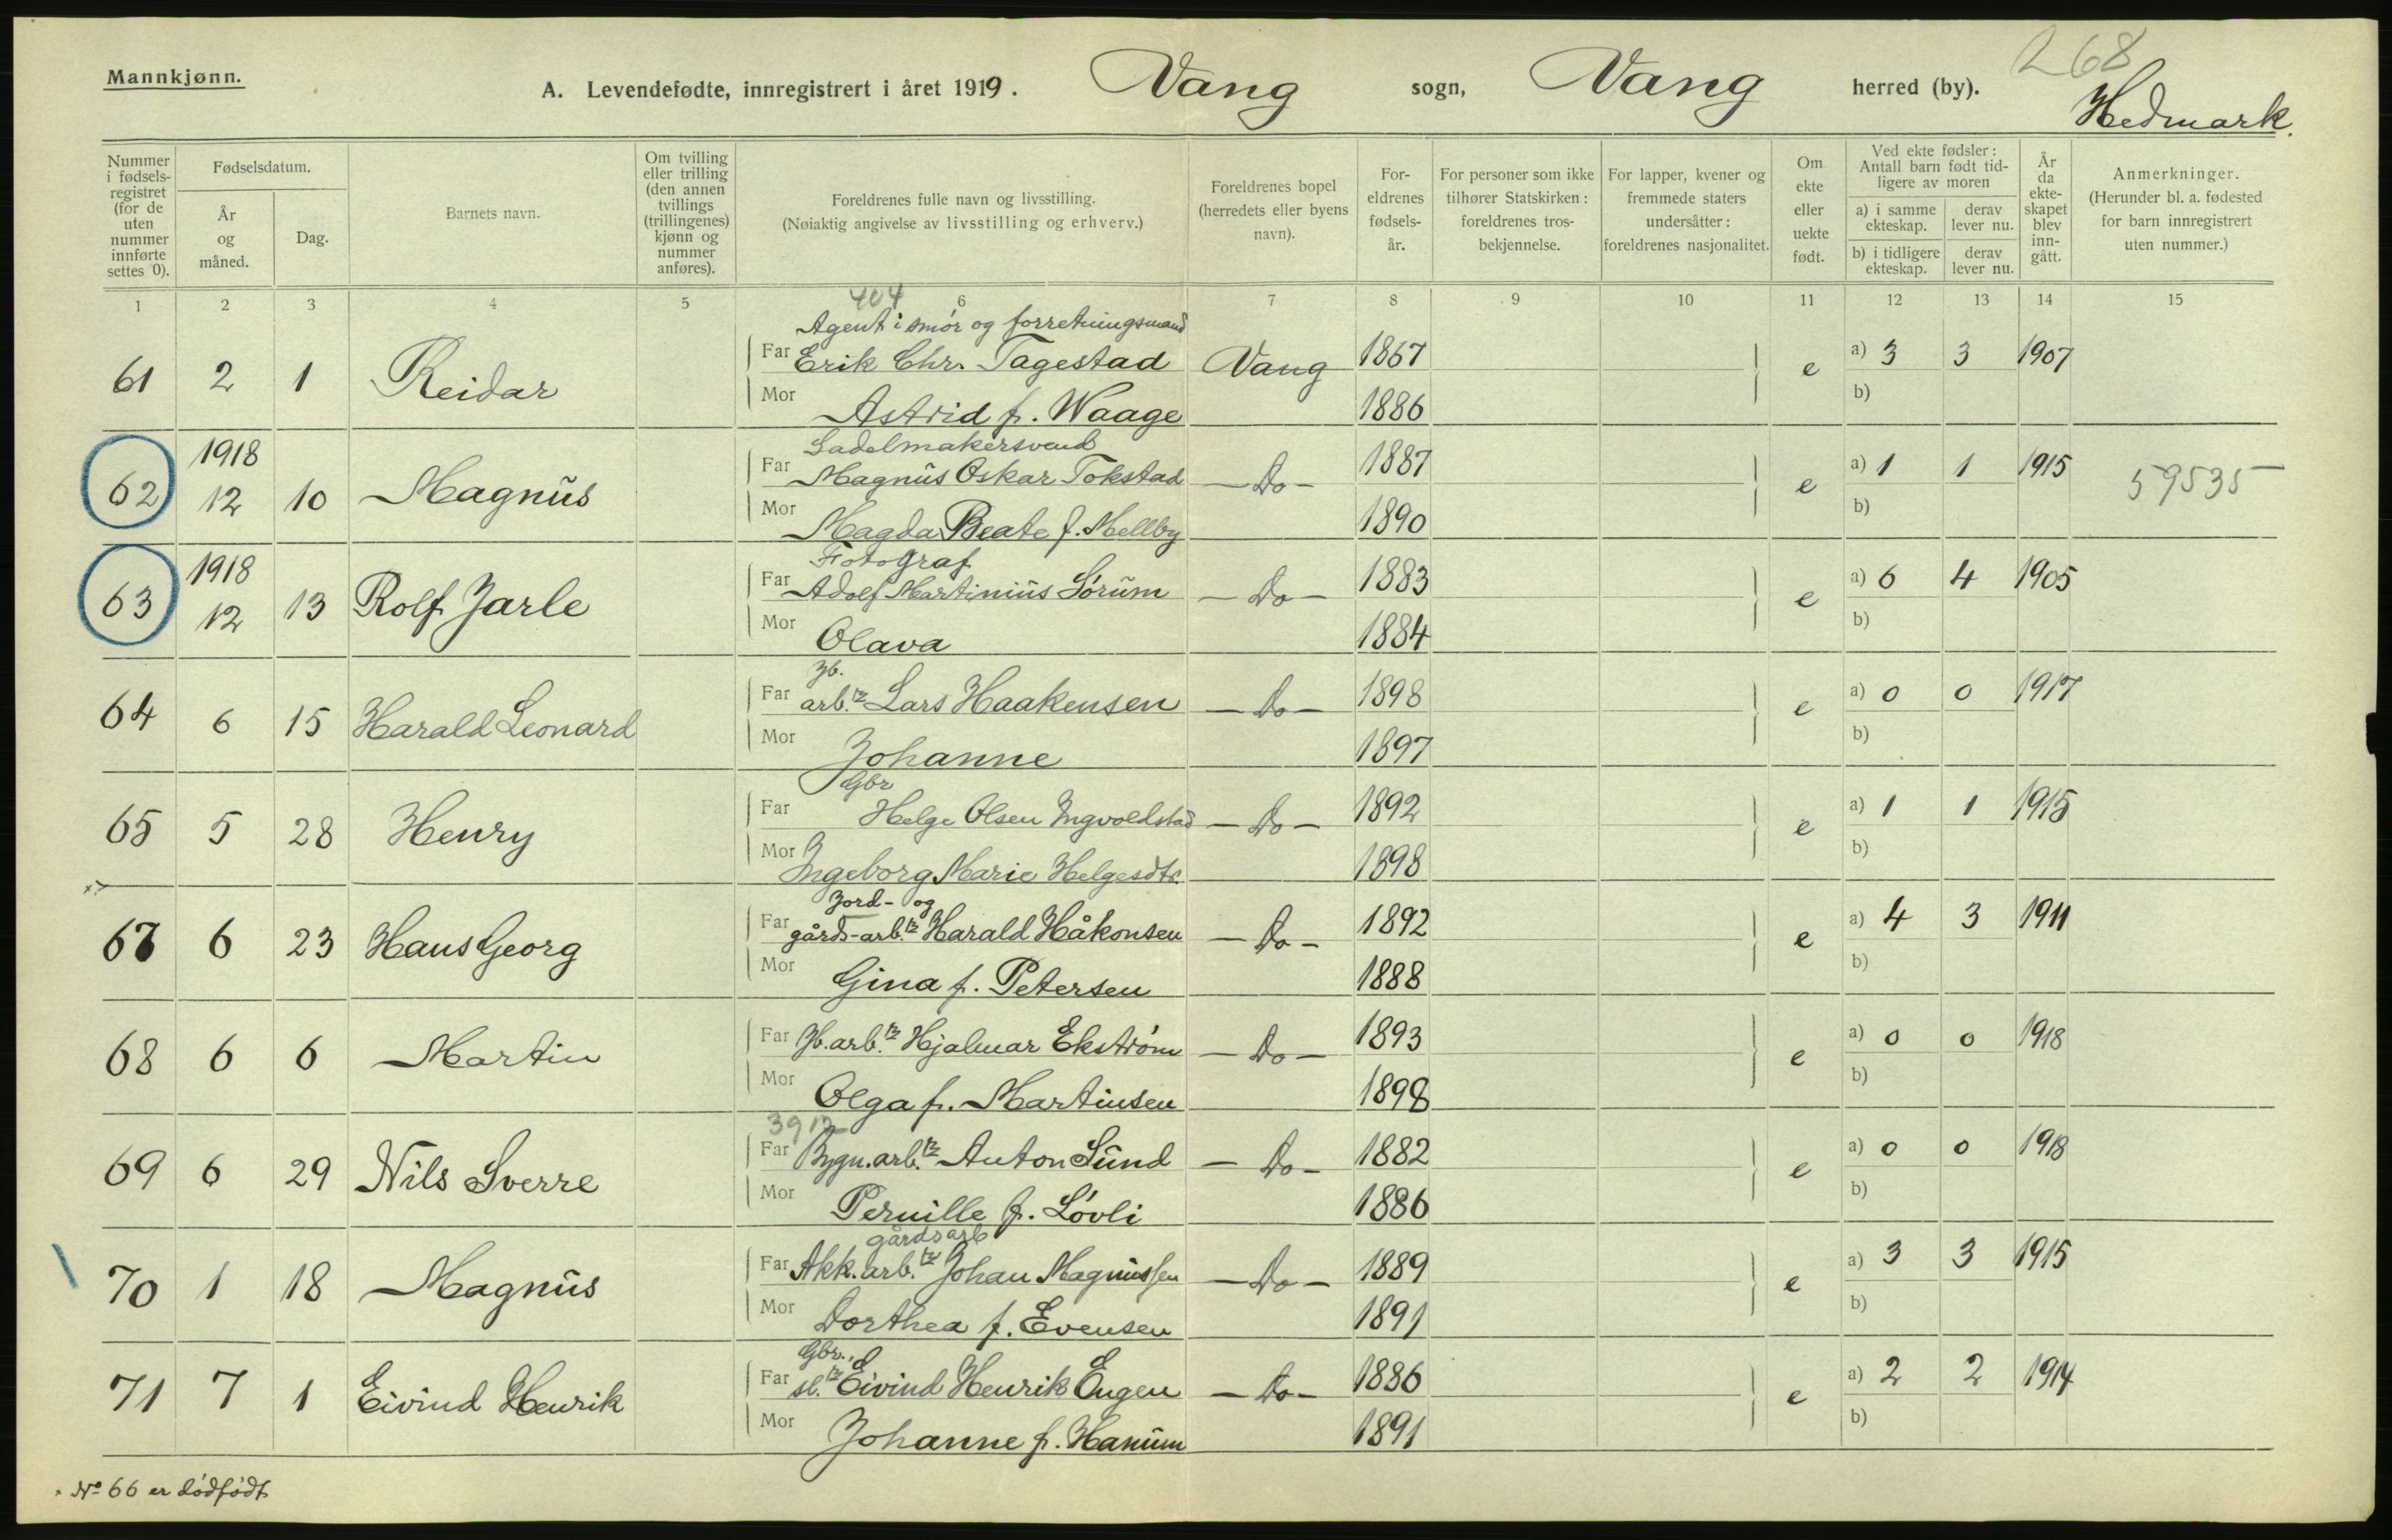 268
Mannkjønn.
A. Levendefødte, innregistrert i året 1919. Vang sogn, Vang herred (by).
Hedmark.
Nummer i fødsels-registret (for de uten nummer innførte settes 0).
Fødselsdatum.
År og måned.
Dag.
Barnets navn.
Om tvilling eller trilling (den annen tvillings (trillingenes) kjønn og nummer anføres).
Foreldrenes fulle navn og livsstilling.
(Nøiaktig angivelse av livsstilling og erhverv.)
Foreldrenes bopel (herredets eller byens navn).
For-eldrenes fødsels-år.
For personer som ikke tilhører Statskirken: foreldrenes tros-bekjennelse.
For lapper, kvener og fremmede staters undersåtter: foreldrenes nasjonalitet.
Om ekte eller uekte født.
Ved ekte fødsler: Antall barn født tid-ligere av moren
a) i samme ekteskap.
derav lever nu.
b) i tidligere ekteskap.
derav lever nu.
År da ekte-skapet blev inn-gått.
Anmerkninger.
(Herunder bl. a. fødested for barn innregistrert uten nummer.)
1 2 3 4 5 6 7 8 9 10 11 12 13 14 15
404
Agent i smör og forretningsmand
61 2 1 Reidar Far Erik Chr. Tagestad Vang 1867 e a) 3 3 1907
Mor Astrid f. Waage 1886 b)
1918 Sadelmakersvend
62 12 10 Magnus Far Magnus Oskar Tokstad - Do - 1887 e a) 1 1 1915 59535
Mor Magda Beate f. Mellby 1890 b)
1918 Fotograf
63 12 13 Rolf Jarle Far Adolf Martinius Sörum - Do - 1883 e a) 6 4 1905
Mor Olava 1884 b)
Jb.
64 6 15 Harald Leonard Far arb.r Lars Haakensen - Do - 1898 e a) 0 0 1917
Mor Johanne 1897 b)
Gbr
65 5 28 Henry Far Helge Olsen Ingvoldstad - Do - 1892 e a) 1 1 1915
Mor Ingeborg Marie Helgesdtr. 1898 b)
Jord- og
67 6 23 Hans Georg Far gårds-arb.r Harald Håkonsen - Do - 1892 e a) 4 3 1911
Mor Gina f. Petersen 1888 b)
68 6 6 Martin Far Jb. arb.r Hjalmar Ekström - Do - 1893 e a) 0 0 1918
Mor Olga f. Martinsen 1898 b)
3912
69 6 29 Nils Sverre Far Bygn. arb.r Anton Sund - Do - 1882 e a) 0 0 1918
Mor Pernille f. Lövli 1886 b)
gårdsarb
70 1 18 Magnus Far Akk. arb.r Johan Magnussen - Do - 1889 e a) 3 3 1915
Mor Dorthea f. Evensen 1891 b)
Gbr.,
71 7 1 Eivind Henrik Far sl.r Eivind Henrik Engen - Do - 1886 e a) 2 2 1914
Mor Johanne f. Hanum 1891 b)
× No 66 er dödfödt